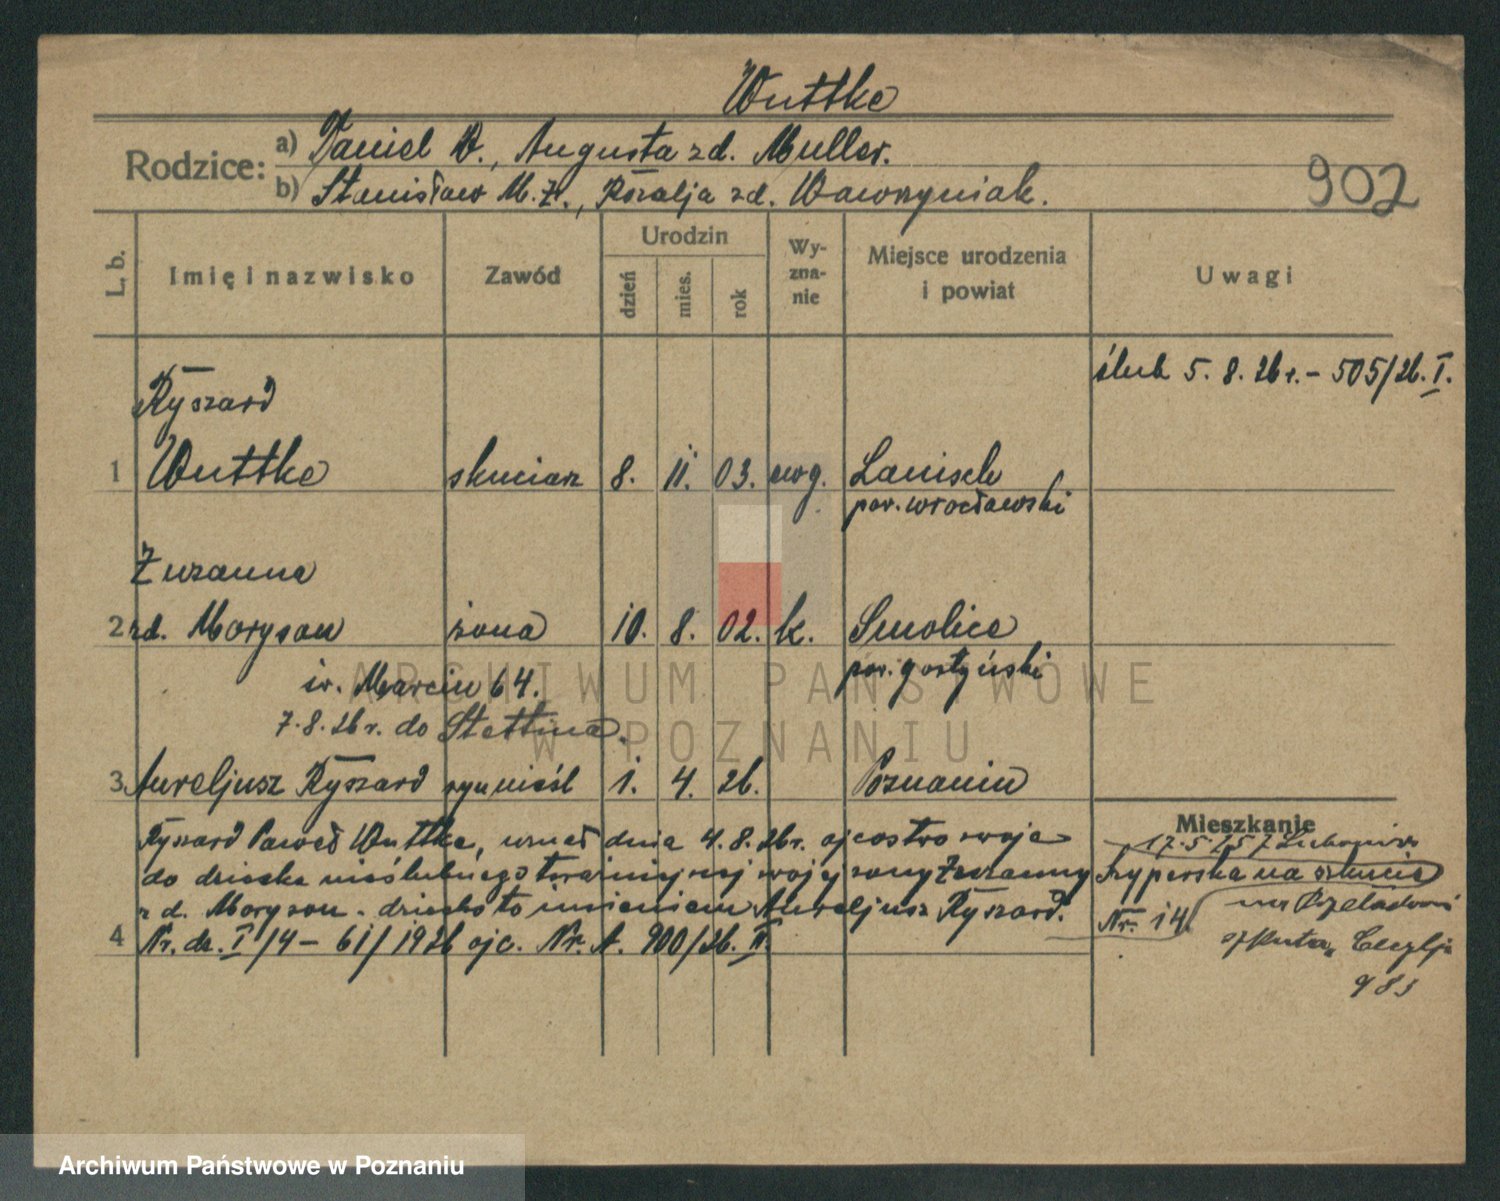 Wuttke
Rodzice: a) Daniel W., Augusta zd. Muller.
b) Stanisław M. Zr., Rozalja zd. Wawrzyniak.
902
L. b.
Imię i nazwisko
Zawód
Urodzin
dzień
mies.
rok
Wy-
zna-
nie
Miejsce urodzenia
i powiat
Uwagi
ślub 5. 8. 26 r. - 505/26. I.
Ryszard
1 Wuttke
8. 11. 03. ewg. Lanisch
pow. wrocławski
Zuzanna
2 zd. Moryson żona 10. 8. 02. k. Smolice
pow. gostyński
św. Marcin 64.
7. 8. 26 r. do Stettina.
3 Aureljusz Ryszard syn nieśl 1. 4. 26. Poznaniu
Ryszard Paweł Wuttke, uznał dnia 4. 8. 26 r. ojcostwo swoje
do dziecka nieślubnego swojej żony Zuzanny
zd. Moryson - dziecko to imieniem Aureljusz Ryszard.
4 Nr. dz. I/4 - 61/1926 ojc. Nr. A. 900/26. II.
Mieszkanie
17. 5.
Szyperska na szkucie
Nr. 14
szkuta „Cecylja
983
ARCHIWUM PAŃSTWOWE
W POZNANIU
Archiwum Państwowe w Poznaniu